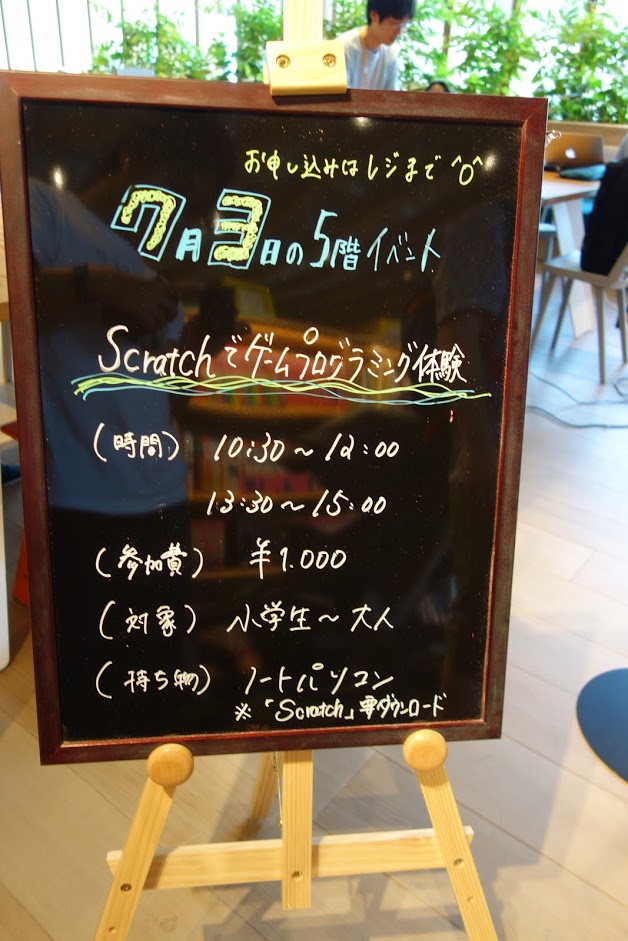 お申し込みはレジまで ^o^
7月3日の5階イベント
Scratchでゲームプログラミング体験
(時間) 10:30～12:00
13:30～15:00
(参加費) ¥1.000
(対象) 小学生～大人
(持ち物) ノートパソコン
※「Scratch」要ダウンロード